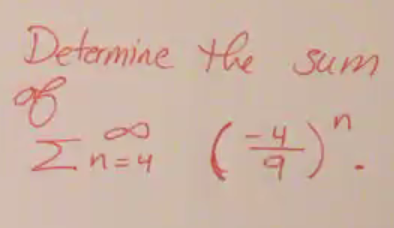 Determine the sum
of
∑ₙ₌₄^∞ (-4/9)ⁿ.